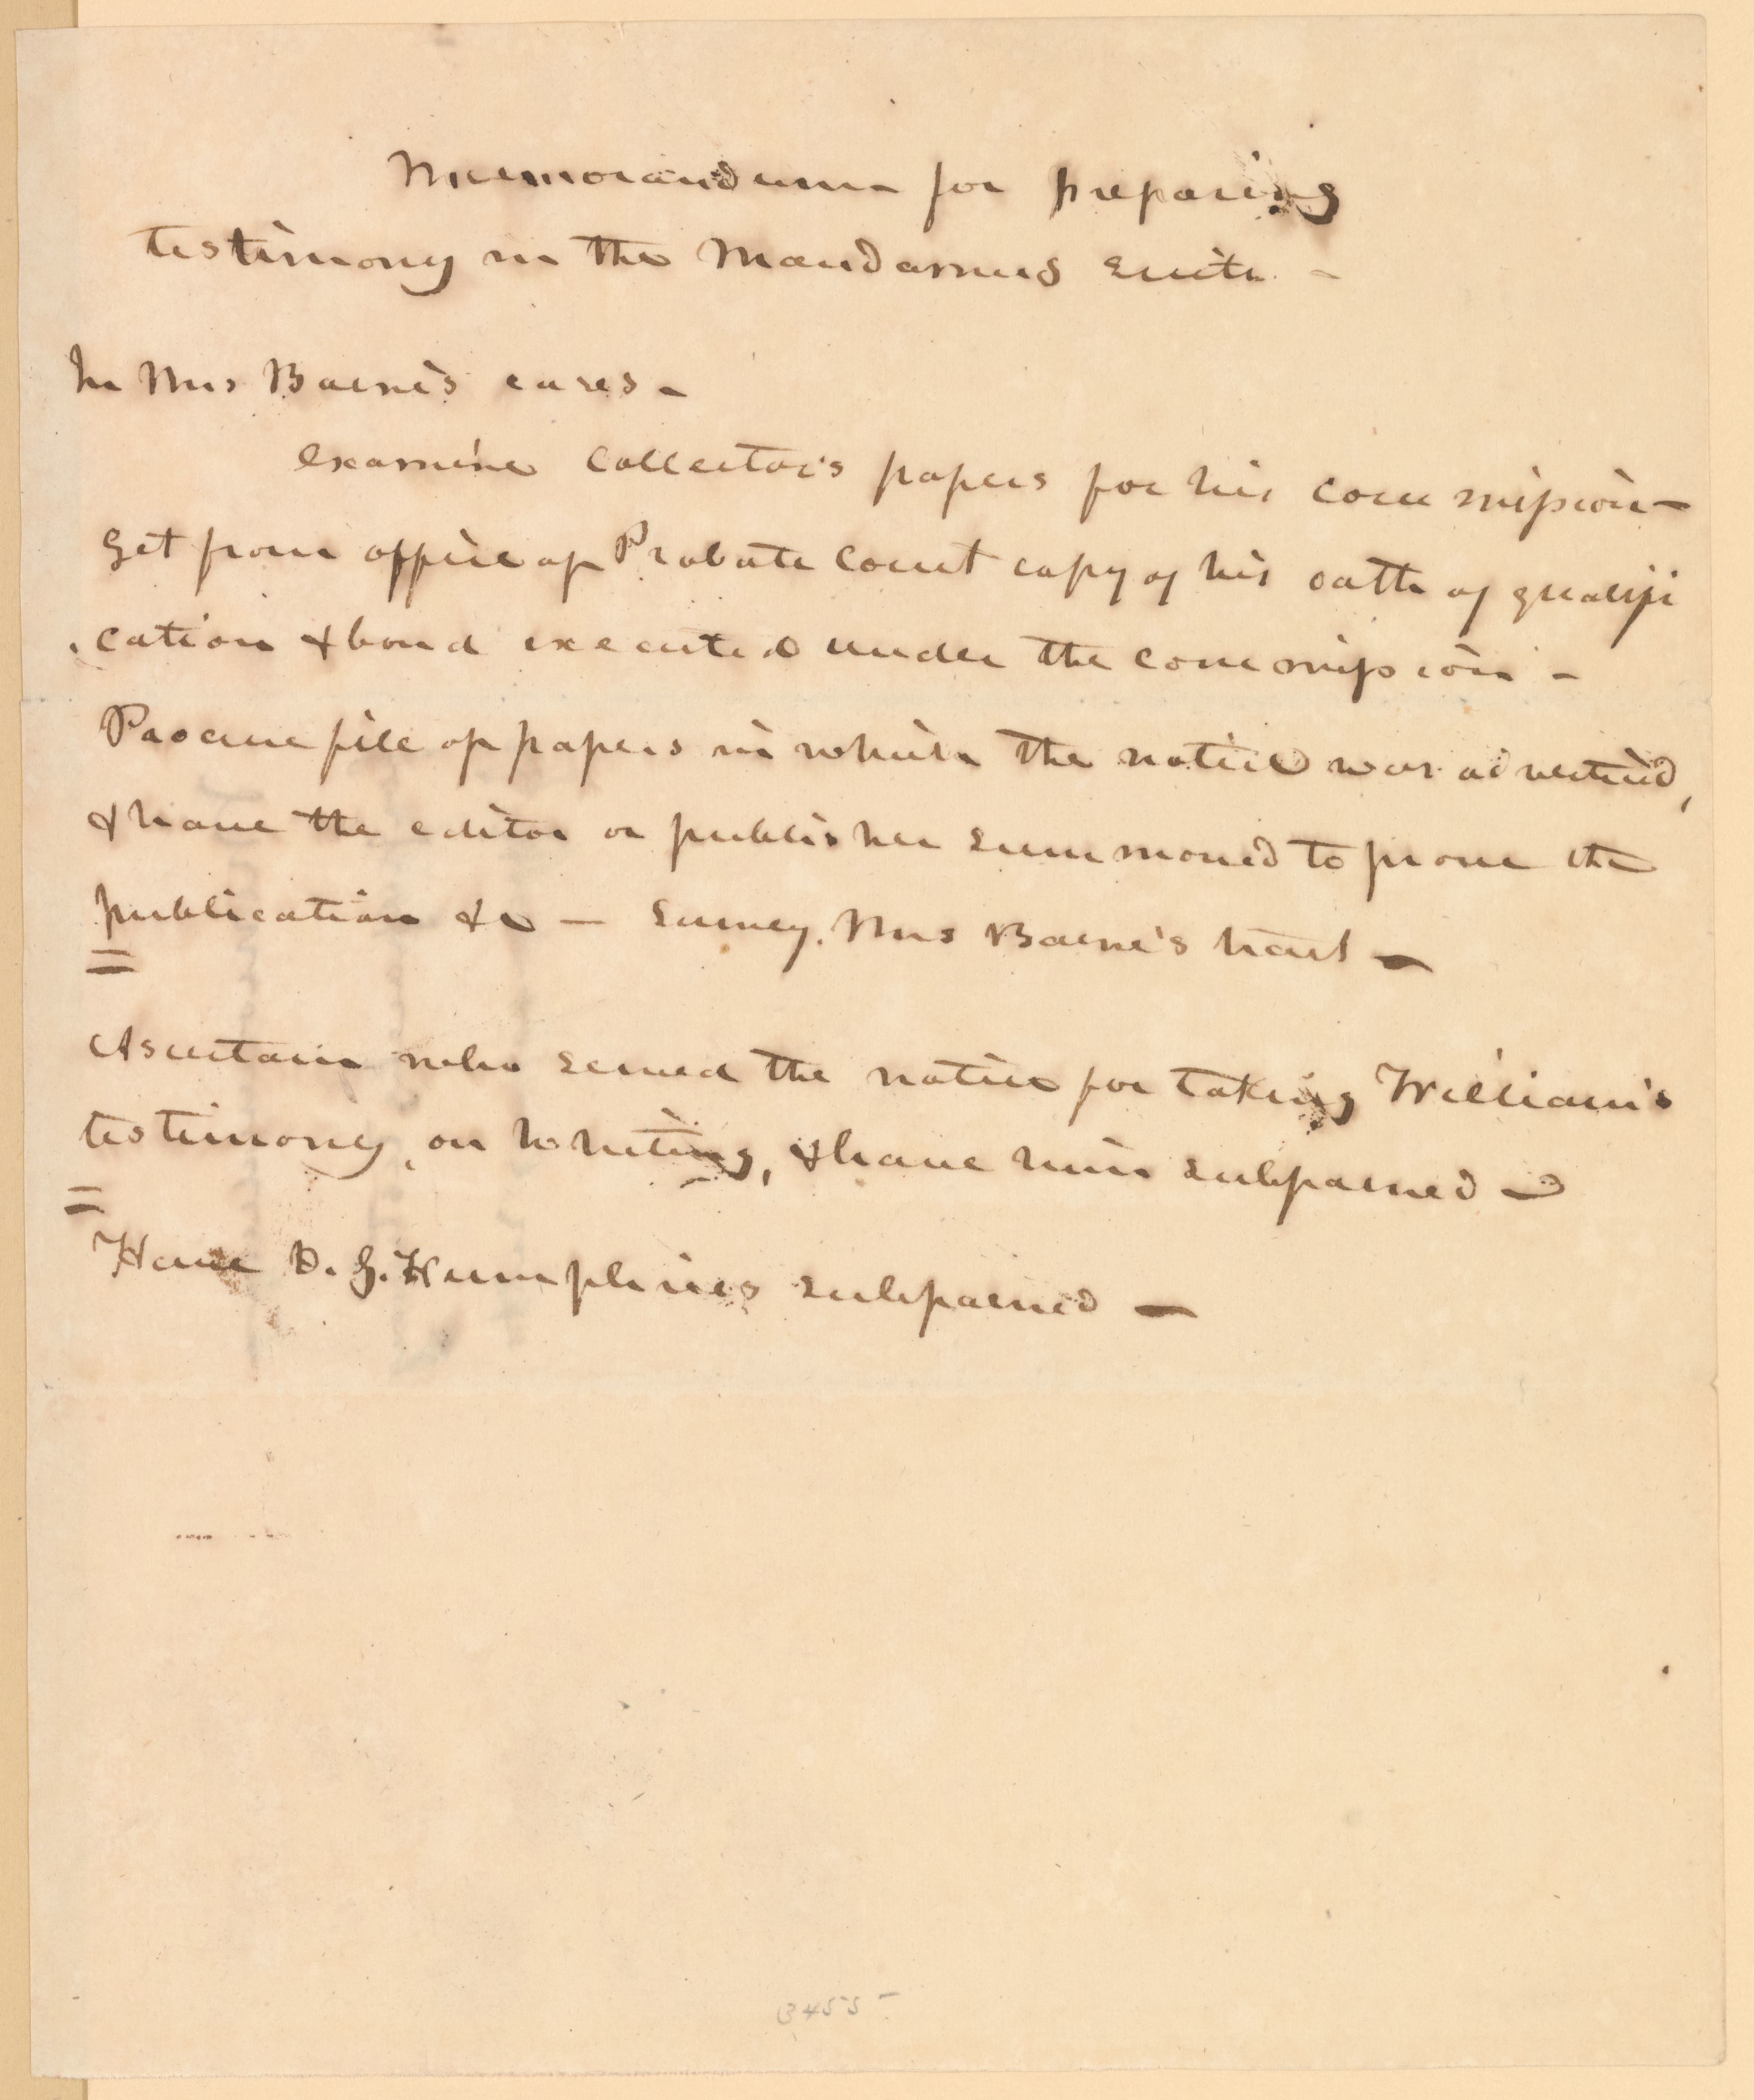 Memorandum for preparing
testimony in the Mandamus suits -
In Mrs Bacne's cases -
Examine Collector's papers for his commission -
Get from office of Probate Court copy of his oath of qualifi
cation & bond executed under the commission -
Procure file of papers in which the notice was advertised,
& have the editor or publisher summoned to prove the
publication &c — Survey, Mrs Bacne's tract —
Ascertain who served the notice for taking William's
testimony, on Whiting, & have him subpoened -
Have D. G. Humphries subpoened —
3455 -